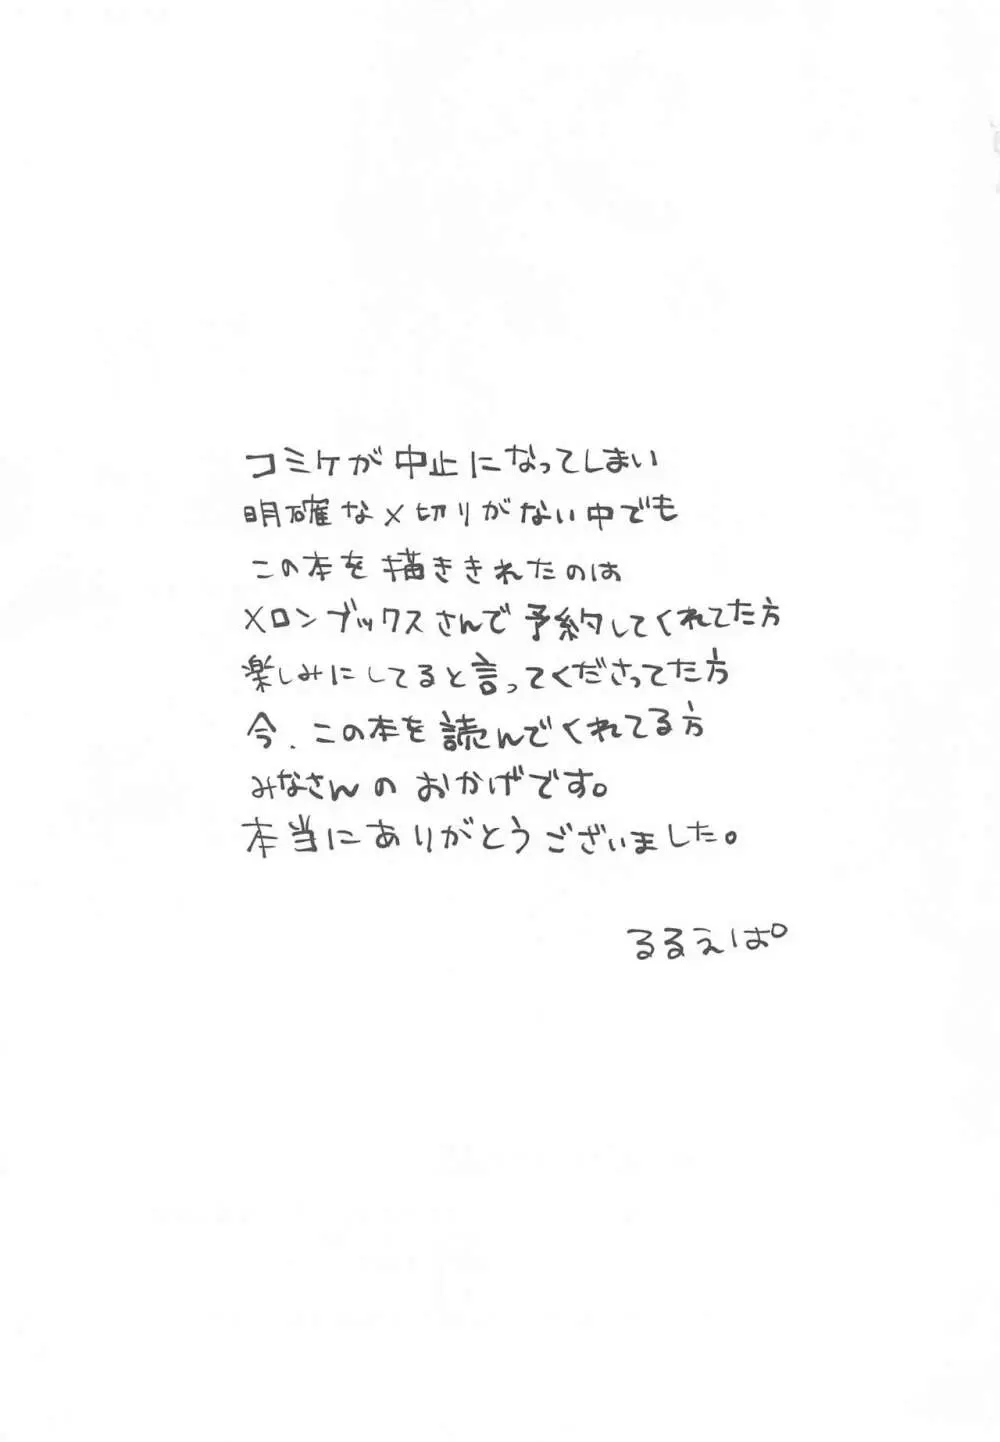 コミケが中止になってしまい
明確な〆切りがない中でも
この本を描ききれたのは
メロンブックスさんで予約してくれてた方
楽しみにしてると言ってくださってた方
今、この本を読んでくれてる方
みなさんのおかげです。
本当にありがとうございました。
るるえぱ